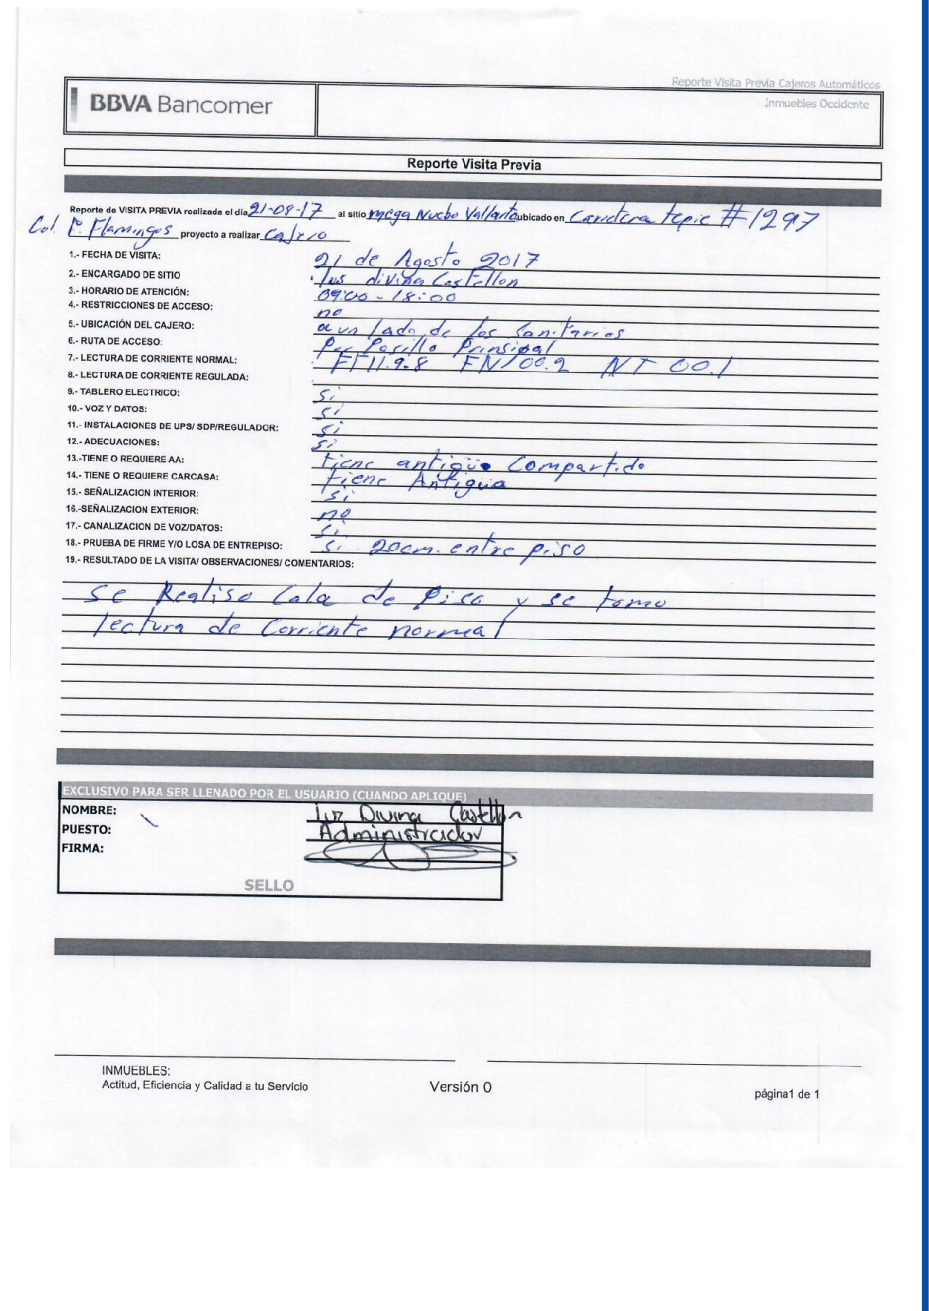 Reporte Visita Previa Cajeros Automáticos
BBVA Bancomer
Inmuebles Occidente
Reporte Visita Previa
Reporte de VISITA PREVIA realizada el dia 21-08-17 al sitio mega Nuebo Vallarta ubicado en Carretera tepic #1297
Col. F. Flamingos proyecto a realizar Cajero
1.- FECHA DE VISITA: 21 de Agosto 2017
2.- ENCARGADO DE SITIO lus divina Castellon
3.- HORARIO DE ATENCIÓN: 09:00 - 18:00
4.- RESTRICCIONES DE ACCESO: no
5.- UBICACIÓN DEL CAJERO: a un lado de los Sanitarios
6.- RUTA DE ACCESO: Por Pasillo Prinsipal
7.- LECTURA DE CORRIENTE NORMAL: FT 119.8 FN/00.2 NT 00.1
8.- LECTURA DE CORRIENTE REGULADA:
9.- TABLERO ELECTRICO: si
10.- VOZ Y DATOS: si
11.- INSTALACIONES DE UPS/ SDP/REGULADOR: si
12.- ADECUACIONES: si
13.-TIENE O REQUIERE AA: tiene antigüo Compartido
14.- TIENE O REQUIERE CARCASA: tiene Antigua
15.- SEÑALIZACION INTERIOR: si
16.-SEÑALIZACION EXTERIOR: no
17.- CANALIZACION DE VOZ/DATOS: si
18.- PRUEBA DE FIRME Y/O LOSA DE ENTREPISO: si 20cm. entre piso
19.- RESULTADO DE LA VISITA/ OBSERVACIONES/ COMENTARIOS:
se Realiso Cala de Piso y se tomo
lectura de Corriente normal
EXCLUSIVO PARA SER LLENADO POR EL USUARIO (CUANDO APLIQUE)
NOMBRE: Luz Divina Castellon
PUESTO: Administrador
FIRMA:
SELLO
INMUEBLES:
Actitud, Eficiencia y Calidad a tu Servicio
Versión 0
página1 de 1